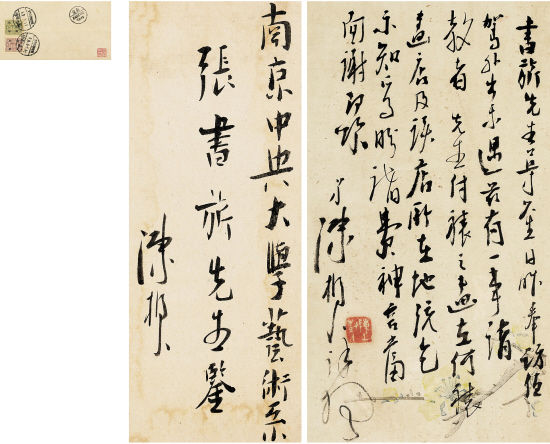 書旂先生尊鑒日昨奉訪值
駕外出未遇茲有一事請
教者 先生付裱之畫在何裱
畫店及該店所在地統乞
示知為盼諸費神容當
面謝即頌
弟陳樹人
南京中央大學藝術系
張書旂先生鑒
陳樹人